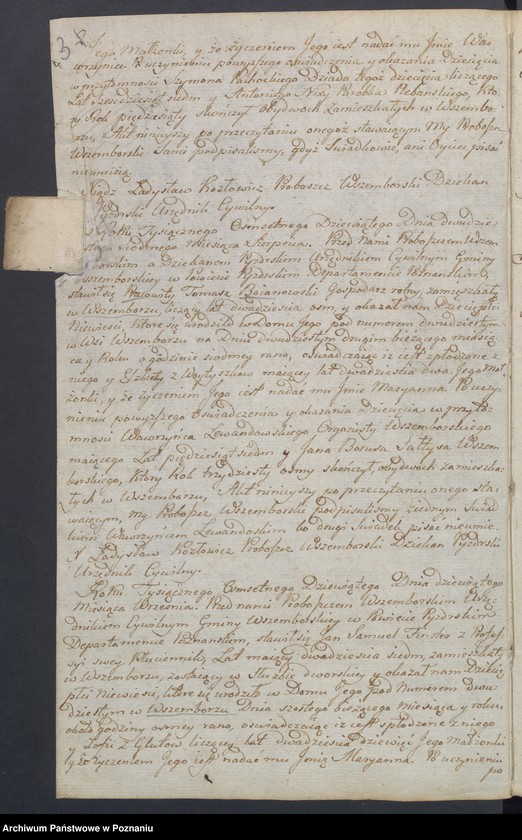 32
Jego Małżonki, y że życzeniem Jego iest nadać mu Jmie Wa-
wrzyniec Po uczynieniu powyższego oświadczenia y okazania Dziecięcia
w przytomności Szymona Dziada tegoż Dziecięcia liczącego
Lat Sześćdziesiąt siedm y Antoniego Plebańskiego, Któ-
ry Rok pięćdziesiąty skończył obydwoch zamieszkałych w Wszembo-
rzu, Akt ninieyszy po przeczytaniu onegoż stawaiącym My Proboszcz
Wszemborski Sami podpisaliśmy, gdyż Swiadkowie, ani Oyciec pisać
nieumieią.
Xiądz Ladysław Kozłowicz Proboszcz Wszemborski Dziekan
Pyzdrski Urzędnik Cywilny.
Roku Tysiącznego Osmsetnego Dziewiątego Dnia dwudzie-
stego siodmego Miesiąca Sierpnia. Przed Nami Proboszczem Wszem-
borskim a Dziekanem Pyzdrskim Urzędnikiem Cywilnym Gminy
Wszemborskiey w Powiecie Pyzdrskim Departamencie Poznańskim,
stawił się Pracowity Tomasz Gospodarz rolny, zamieszkały
w Wszemborzu, liczący lat dwadzieścia osm, y okazał nam Dziecię płci
Niewiesci, które się urodziło w Domu Jego pod numerem dwudziestym
w Wsi Wszemborzu na Dniu dwudziestym drugim bieżącego miesią-
ca y Roku o godzinie siodmey rano, oświadczaiąc iż iest spłodzone z
niego y Elżbiety z maiącey lat dwadzieścia dwa, Jego Mał-
żonki, y że życzeniem Jego iest nadać mu Jmie Maryanna. Po uczy-
nieniu powyższego Oświadczenia y okazania Dziecięcia w przyto-
mności Wawrzyńca Lewandowskiego Organisty Wszemborskiego
maiącego Lat pięćdziesiąt siedm y Jana Sołtysa Wszem-
borskiego, Który Rok trzydziesty osmy skończył, obydwoch zamieszka-
łych w Wszemborzu, Akt ninieyszy po przeczytaniu onego sta-
waiącym, my Proboszcz Wszemborski podpisaliśmy z iednym Swiad-
kiem Wawrzyńcem Lewandoskim bo drugi Swiadek pisać nieumie.
X Ladysław Kozłowicz Proboszcz Wszemborski Dziekan Pyzdrski
Urzędnik Cywilny.
Roku Tysiącznego Osmsetnego Dziewiątego Dnia dziewiątego
Miesiąca Września. Przed nami Proboszczem Wszemborskim Urzę-
dnikiem Cywilnym Gminy Wszemborskiey w Powiecie Pyzdrskim
Departamencie Poznańskim, stawił się Jan Samuel z Profes-
syi swey Płuciennik, Lat maiący dwadzieścia siedm, zamieszkały
w Wszemborzu, zostaiący w służbie dworskiey y okazał nam Dziecię
płci Niewiesci, które się urodziło w Domu Jego pod Numerem dwu-
dziestym w Wszemborzu Dnia szostego bieżącego Miesiąca y roku,
około godziny osmey rano, oświadczaiąc iż iest spłodzone z niego
y Zofii z liczącey lat dwadzieścia Dziewięć Jego Małżonki
y że życzeniem Jego iest nadać mu Jmię Maryanna. Po uczynieniu
po
Archiwum Państwowe w Poznaniu